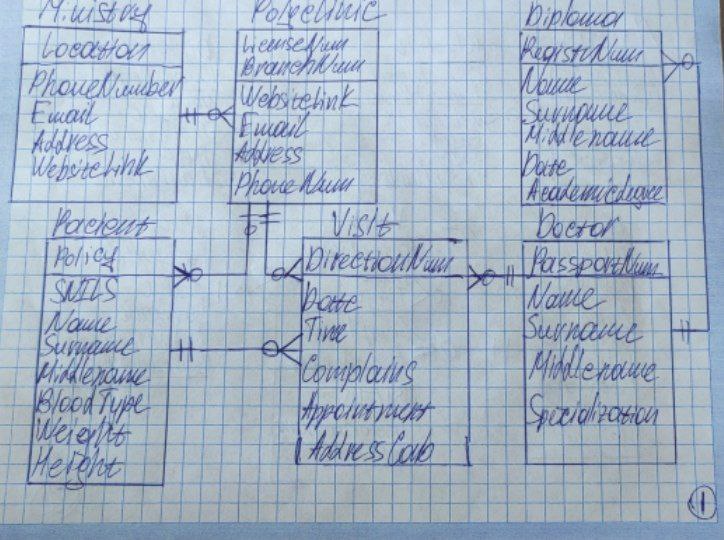 Ministry
Location
PhoneNumber
Email
Address
WebsiteLink
Polyclinic
LicenseNum
BranchNum
WebsiteLink
Email
Address
PhoneNum
Diploma
RegistrNum
Name
Surname
Middlename
Date
Academicdegree
Pacient
Policy
SNILS
Name
Surname
Middlename
BloodType
Weight
Height
Visit
DirectionNum
Date
Time
Complains
Appointment
AddressCab
Doctor
PassportNum
Name
Surname
Middlename
Specialization
1